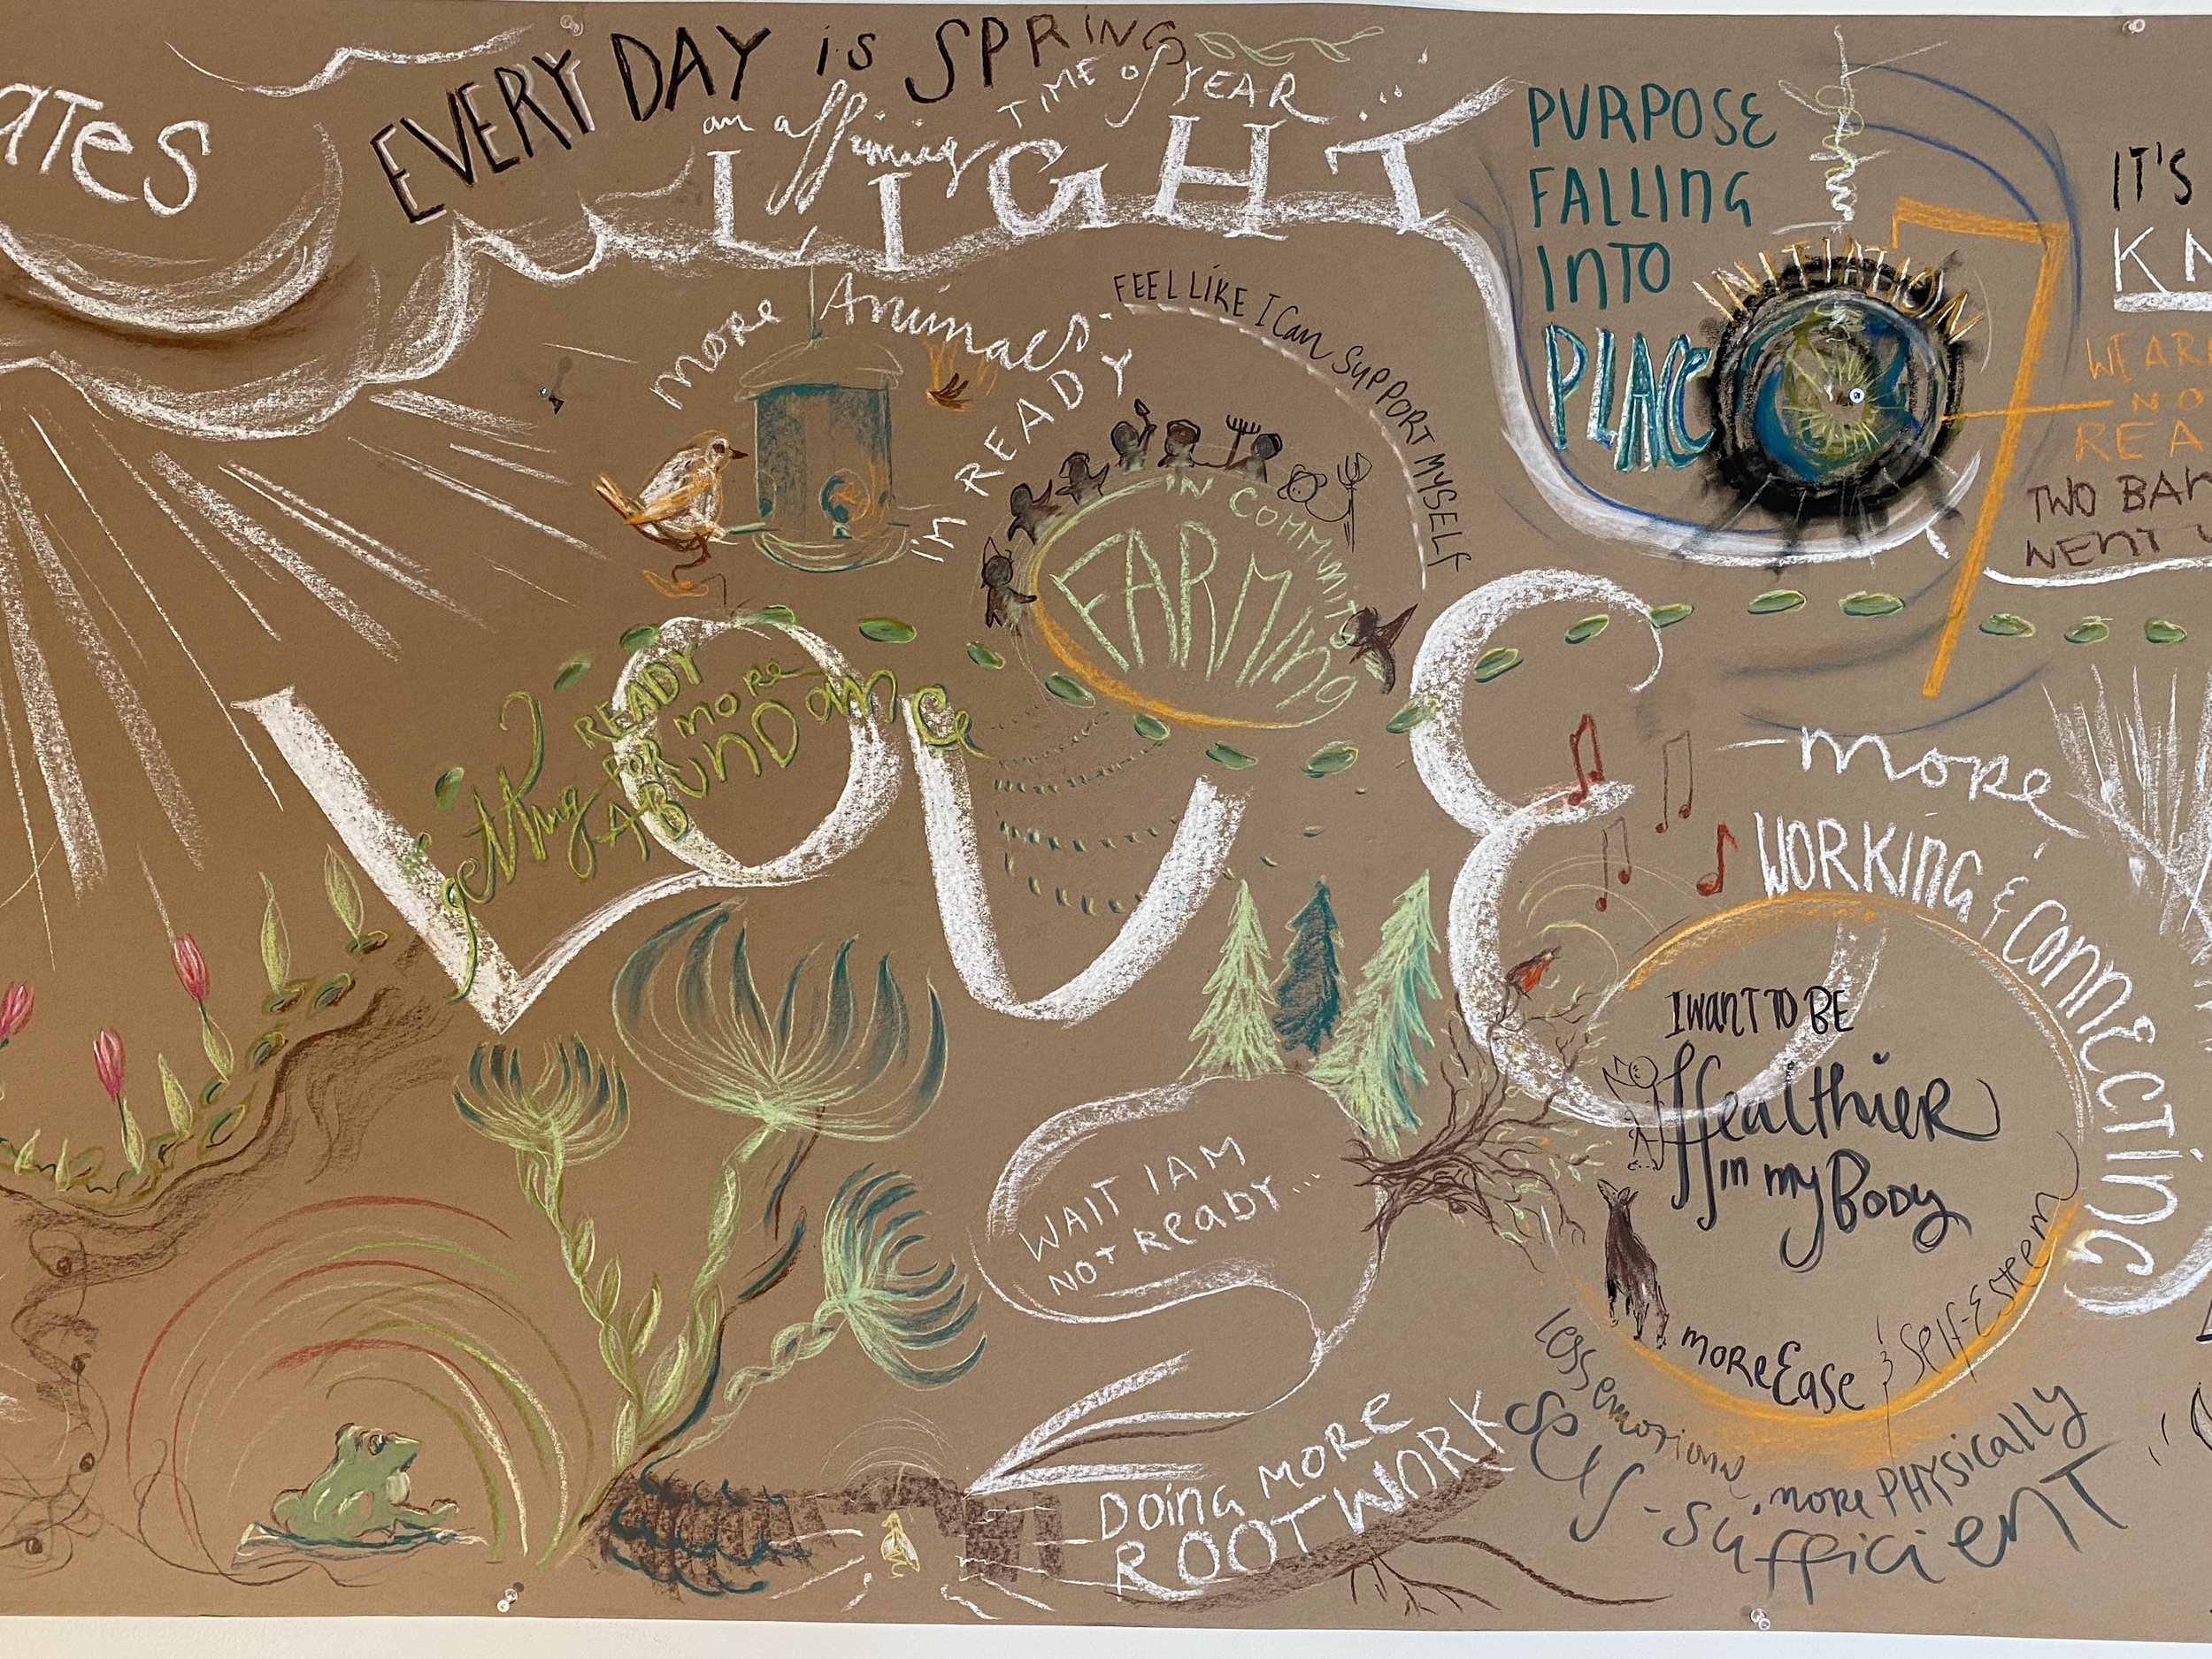 ATES
EVERY DAY is SPRING
an affirming TIME of YEAR ...
LIGHT
PURPOSE
FALLING
INTO
PLACE
INITIATION
IT'S
KN
WE AR
NO
REA
TWO BAN
WENT
MORE Animals
I'm READY
FEEL LIKE I Can SUPPORT MYSELF
IN COMMUNITY
FARMing
LOVE
getting READY
FOR more
ABUNDance
more
WORKING & ConnECTING
I WANT TO BE
Healthier
in my Body
more Ease & Self-Esteem
less emotional
Self-sufficiENT
more PHYsically
WAIT I AM
NOT READY...
DOING MORE
ROOT WORK